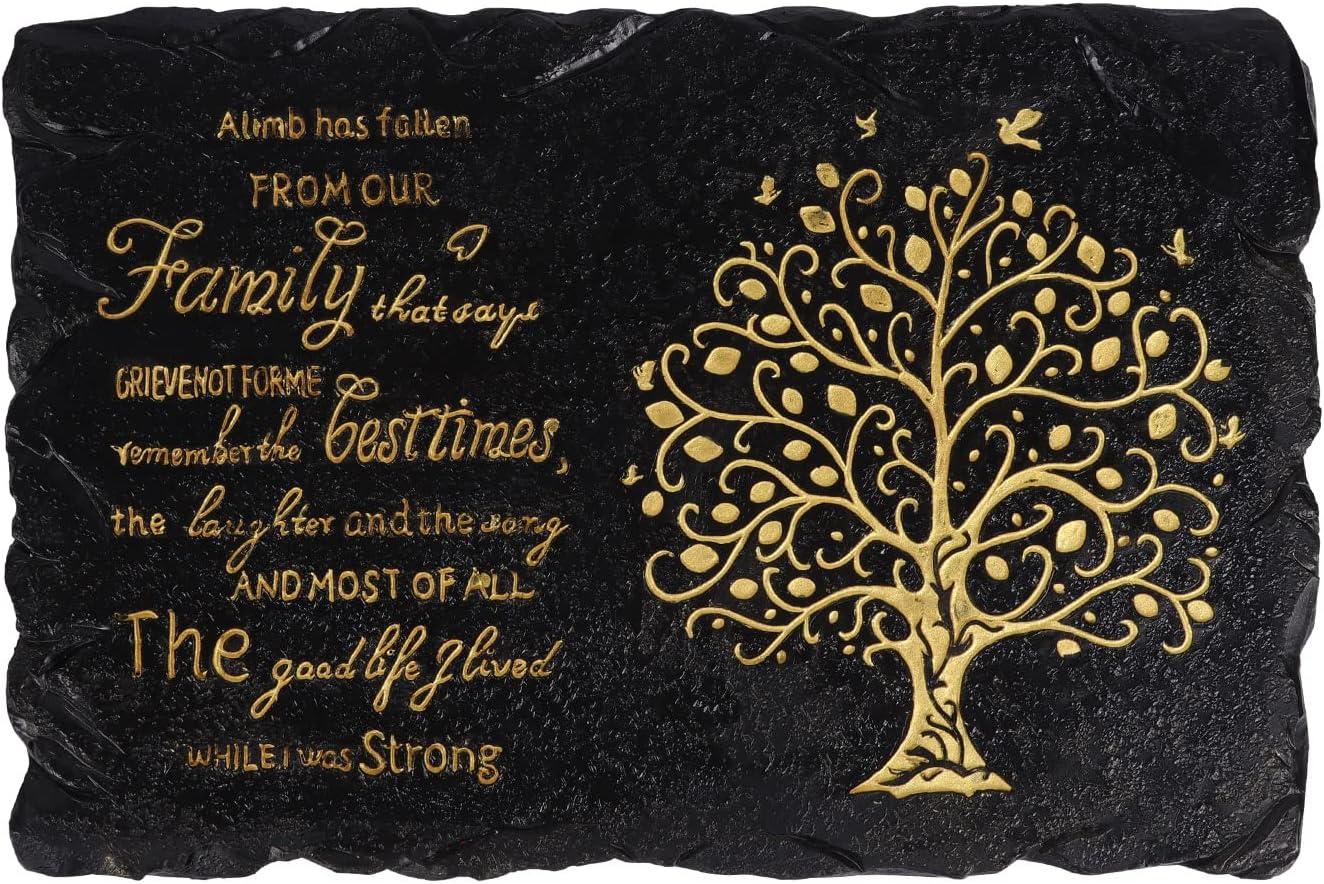 A limb has fallen
FROM OUR
Family that says
GRIEVE NOT FOR ME
remember the best times,
the laughter and the song
AND MOST OF ALL
The good life I lived
WHILE I was Strong